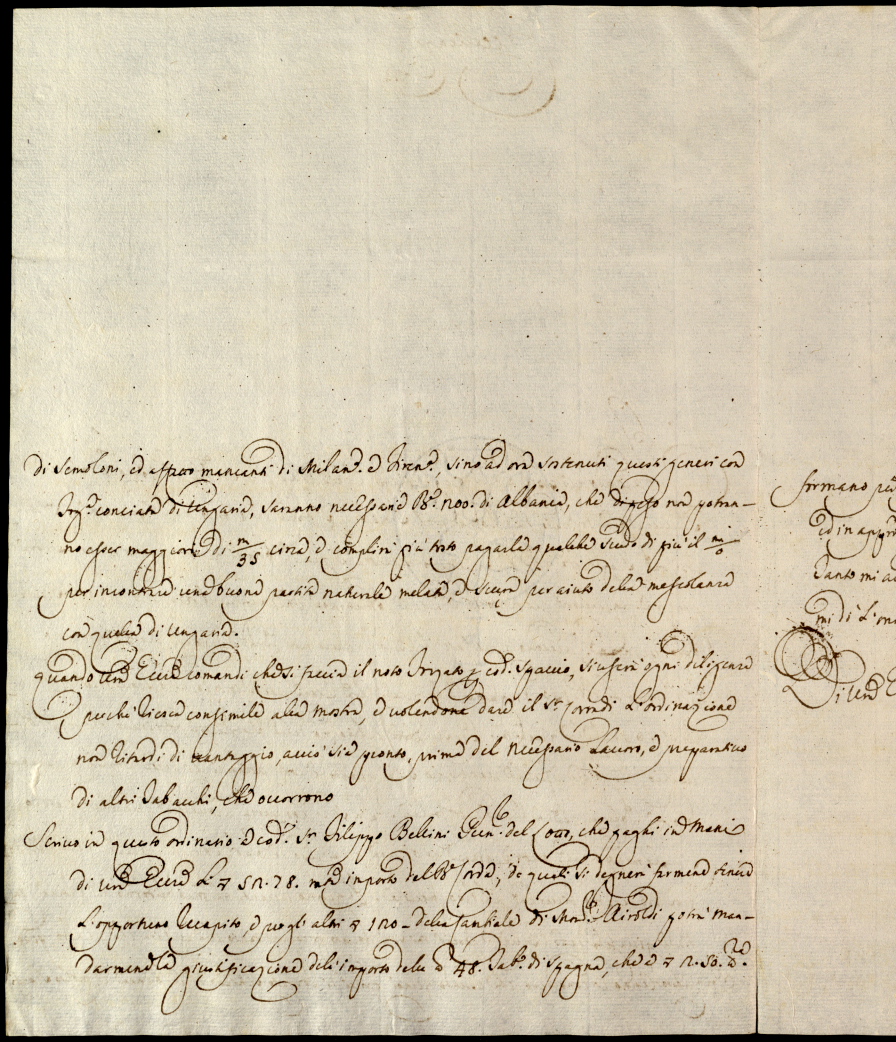 di semoloni, ed affatto mancanti di Milan.e e Firen.e, sino ad ora sostenuti questi generi con
conciata di Ungaria, saranno necessarie B.e n00. di Albania, che di peso non potran-
no esser maggiore di m/35 circa, è complirà più tosto pagarla qualche scudo di più il m/0
per incontrare una buona partita naturale melata, e scura per aiuto della mescolanza
con quella di Ungaria.
quando vra Eccza comandi che si faccia il noto per cod.o spaccio, si userà ogni diligenza
perché riesca consimile alla mostra, e volendone dare il Sr Corradi l'ordinazione
non ritardi di vantaggio, acciò sia pronto, prima del necessario Lavoro, e preparativo
di altri Tabacchi, che occorrono
Scrivo in questo ordinario à cod.o Sr Filippo Bellini del Lotto, che paghi in mani
di vra Eccza 5n.78. importo del Corda, de quali si degnerà farmene tenere
L'opportuno recapito, e per gli altri 1n0 - della di Airoldi potrà man-
darmene la giustificazione dell'importo delle 48. Tab.o di Spagna, che è n.50.
formano più
ed in appro
Tanto mi a
mi di L'on
Di vra E